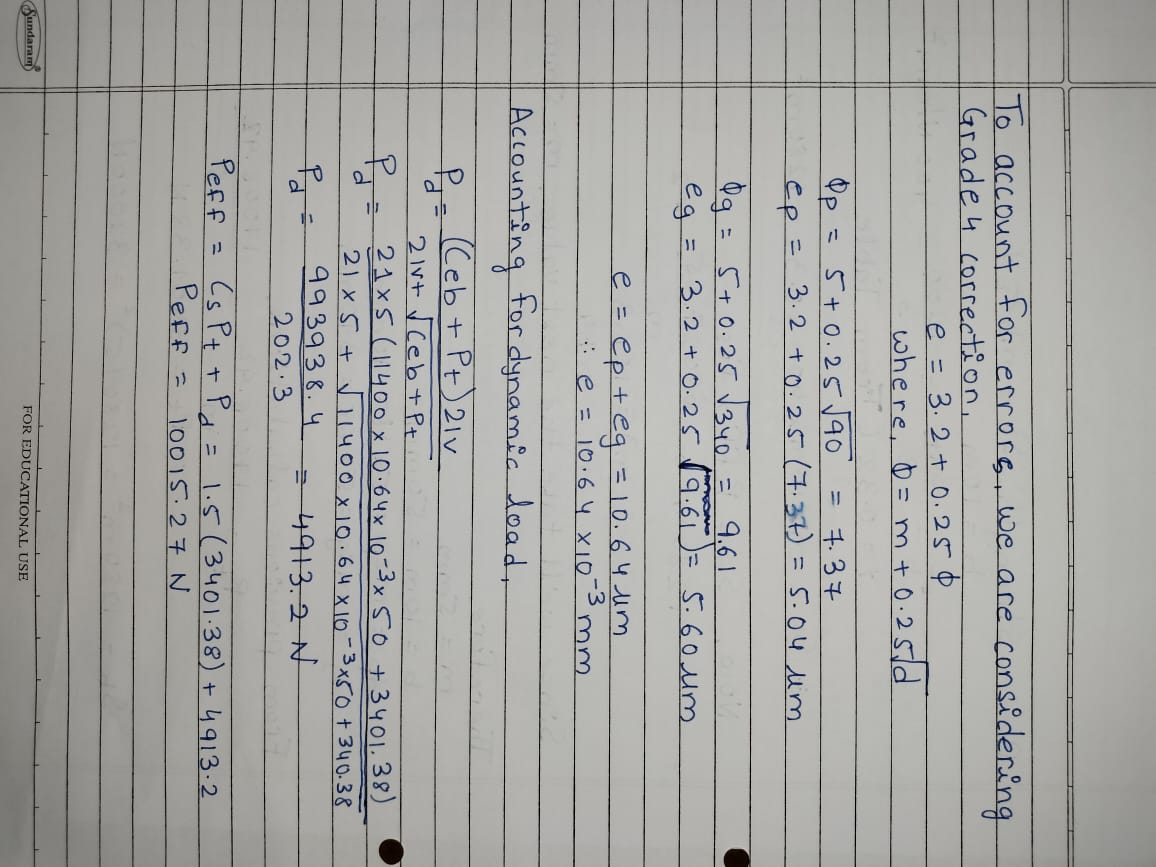 To account for errors, we are considering
Grade 4 correction,
e = 3.2 + 0.25 ϕ
where, ϕ = m + 0.25√d
ϕp = 5 + 0.25√90 = 7.37
ep = 3.2 + 0.25 (7.37) = 5.04 µm
ϕg = 5 + 0.25√340 = 9.61
eg = 3.2 + 0.25 (9.61) = 5.60 µm
e = ep + eg = 10.64 µm
∴ e = 10.64 × 10⁻³ mm
Accounting for dynamic load,
Pd = (Ceb + Pt) 21v / 21v + √Ceb + Pt
Pd = 21 × 5 (11400 × 10.64 × 10⁻³ × 50 + 3401.38) / 21 × 5 + √11400 × 10.64 × 10⁻³ × 50 + 340.38
Pd = 993938.4 / 202.3 = 4913.2 N
Peff = Cs Pt + Pd = 1.5 (3401.38) + 4913.2
Peff = 10015.27 N
Sundaram®
FOR EDUCATIONAL USE